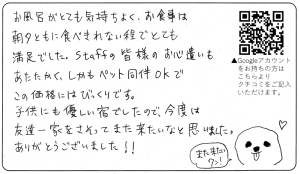 お風呂がとても気持ちよく、お食事は
朝夕ともに食べきれない程でとても
満足でした。Staffの皆様のお心遣いも
あたたかく、しかもペット同伴OKで
この価格にはびっくりです。
子供にも優しい宿でしたので、今度は
友達一家をさそってまた来たいなと思いました。
ありがとうございました!!
▲Googleアカウント
をお持ちの方は
こちらより
クチコミをご記入
いただけます。
また来たい
ワン!